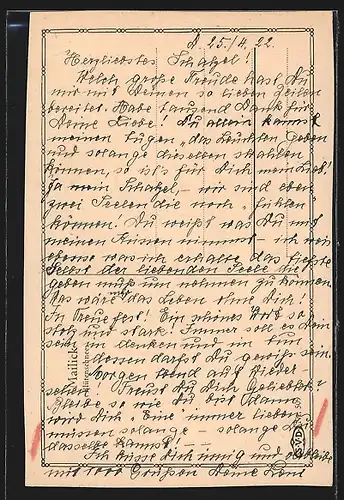 d. 25./4. 22.
Herzliebstes Schatzel!
Welch große Freude hast Du
mir mit Deinen so lieben Zeilen
bereitet. Habe tausend Dank für
Deine Liebe! Du allein kannst
meinen Augen „das Leuchten geben
und solange dieselben strahlen
können, so ist's für Dich mein Lieb!
Ja mein Schatzel, – wir sind eben
zwei Seelen die noch fühlen
können! Du weißt was Du mit
meinen Küssen nimmst – ich weiß
ebenso was ich erhalte, das tiefste
Selbst der liebenden Seele die
geben muß um nehmen zu können.
Was wäre das Leben ohne Dich!
In Treue fest! Ein schönes Wort so
stolz und stark! Immer soll es Dein
sein in denken und in tun
dessen darfst Du gewiß sein.
Morgen Abend auf Wieder-
sehen! Freust Du Dich Geliebter?
Bleibe so wie Du bist dann
wird Dich Eine immer lieben
müssen solange – solange Du
dasselbe kannst! – –
Ich küsse Dich innig und
mit 1000 Grüßen Deine Leni
Mailick